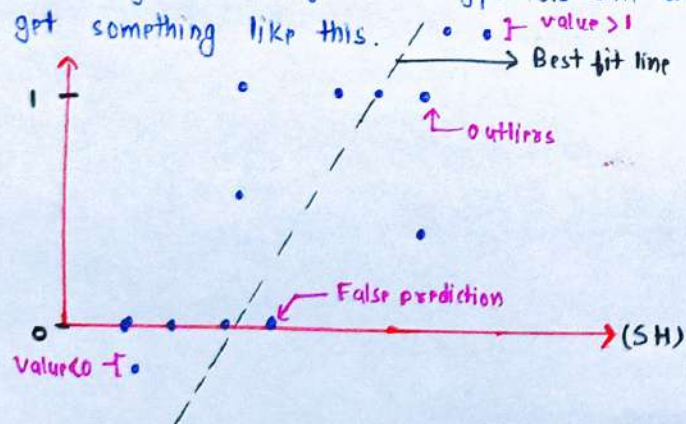 get something like this.
value > 1
Best fit line
1
outliers
False prediction
0
(SH)
value<0